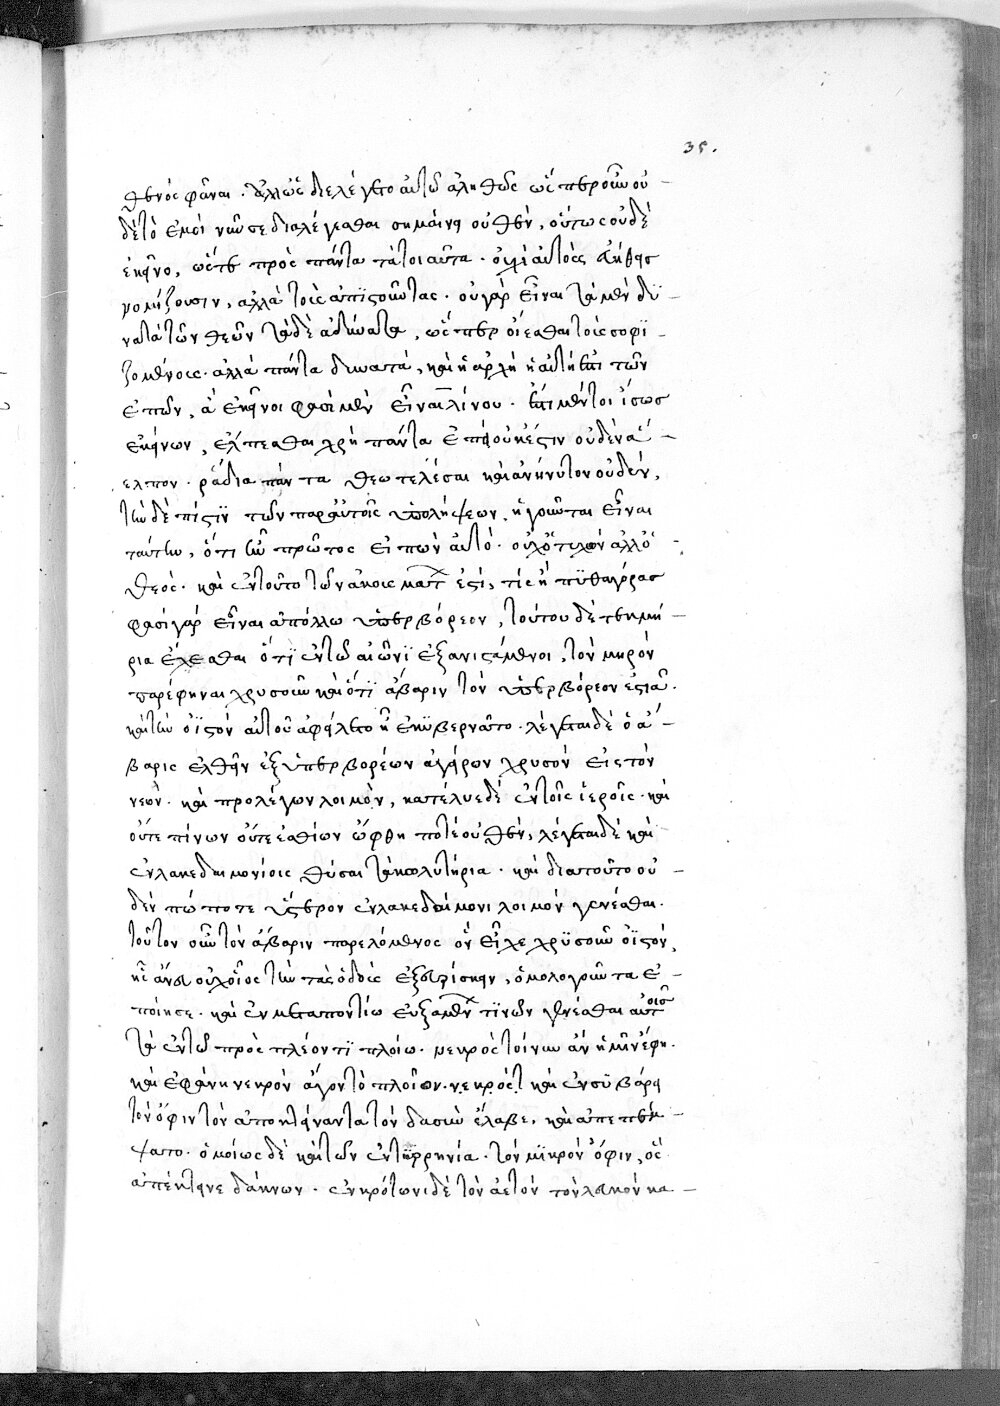 35.
θενὸς φᾶναι. ἀλλ' ὡς διελέγετο αὐτῶ ἀληθῶς ὥσπερ οὖν οὐ-
δὲ τὸ ἐμοὶ νῦν σε διαλέγεσθαι σημαίνει οὐθέν, οὕτως οὐδὲ
ἐκεῖνο, ὥστε πρὸς πάντα τὰ τοιαῦτα. οὐχὶ αὐτοὺς εὐήθεις
νομίζουσιν, ἀλλὰ τοὺς ἀπιστοῦντας. οὐ γὰρ εἶναι τὰ μὲν δϋ-
νατὰ τῶν θεῶν τὰ δὲ ἀδύνατα, ὥσπερ οἴεσθαι τοὺς σοφϊ-
ζομένους. ἀλλὰ πάντα δυνατά, καὶ ἡ ἀρχὴ ἡ αὐτή ἐστι τῶν
ἐπῶν, ἃ ἐκεῖνοι φασὶ μὲν εἶναι λίνου. ἔστι μέντοι ἴσως
ἐκείνων, ἔλπεσθαι χρὴ πάντα ἐπεὶ οὐκ ἔστιν οὐδὲν ἄ-
ελπον. ῥάδια πάντα θεῶ τελέσαι καὶ ἀνήνυτον οὐδέν,
τὴν δὲ πίστϊν τῶν παρ' αὐτοῖς ὑπολήψεων, ἡγοῦνται εἶναι
ταύτην, ὅτι ἦν πρῶτος εἰπὼν αὐτὸ. οὐχ ὁ τυχὼν ἀλλ' ὁ
θεός. καὶ ἓν τοῦτο τῶν ἀκουσμάτ ἐστί, τίς εἶ πϋθαγόρας
φασὶ γὰρ εἶναι ἀπόλλω ὑπερβόρεον, τούτου δὲ τεκμή-
ρια ἔχεσθαι ὅτϊ ἐν τῶ ἀγῶνϊ ἐξανιστάμενοι, τὸν μηρὸν
παρέφηναι χρυσοῦν καὶ ὅτϊ ἄβαριν τὸν ὑπερβόρεον ἑστία.
καὶ τὴν ὀϊστὸν αὐτοῦ ἀφείλετο ἧ ἐκϋβερνᾶτο. λέγεται δὲ ὁ ἄ-
βαρις ἐλθεῖν ἐξ ὑπερβορέων ἀγείρων χρυσὸν εἰς τὸν
νεών. καὶ προλέγων λοιμόν, κατέλυε δὲ ἐν τοῖς ἱεροῖς. καὶ
οὔτε πίνων οὔτε ἐσθίων ὤφθη ποτὲ οὐθέν, λέγεται δὲ καὶ
ἐν λακεδαιμονίοις θῦσαι τὰ κωλυτήρια. καὶ διὰ τοῦτο οὐ-
δὲν πώποτε ὕστερον ἐν λακεδαίμονι λοιμὸν γενέσθαι.
τοῦτον οὖν τὸν ἄβαριν παρελόμενος ὃν εἶχε χρϋσοῦν ὀϊστόν,
ἧς ἄνευ οὐχ οἷος τ' ἦν τὰς ὁδοὺς ἐξευρίσκειν, ὁμολογοῦντα ἐ-
ποίησε. καὶ ἐν μεταποντίω εὐξαμέν τϊνων γενέσθαι αὐτοῖς
τὰ ἐν τῶ προσπλέοντϊ πλοίω. νεκρὸς τοίνυν ἂν ἡμῖν ἔφη.
καὶ ἐφάνη νεκρὸν ἄγον τὸ πλοῖον. νεκρὸς τ καὶ ἐν σϋβάρει
τὸν ὄφιν τὸν ἀποκτείναντα τὸν δασὺν ἔλαβε, καὶ ἀπεπέμ-
ψατο. ὁμοίως δὲ καὶ τῶν ἐν τϋρρηνία. τὸν μϊκρὸν ὄφιν, ὃς
ἀπέκτεινε δάκνων. ἐν κρότωνι δὲ τὸν ἀετὸν τὸν λευκὸν κα-